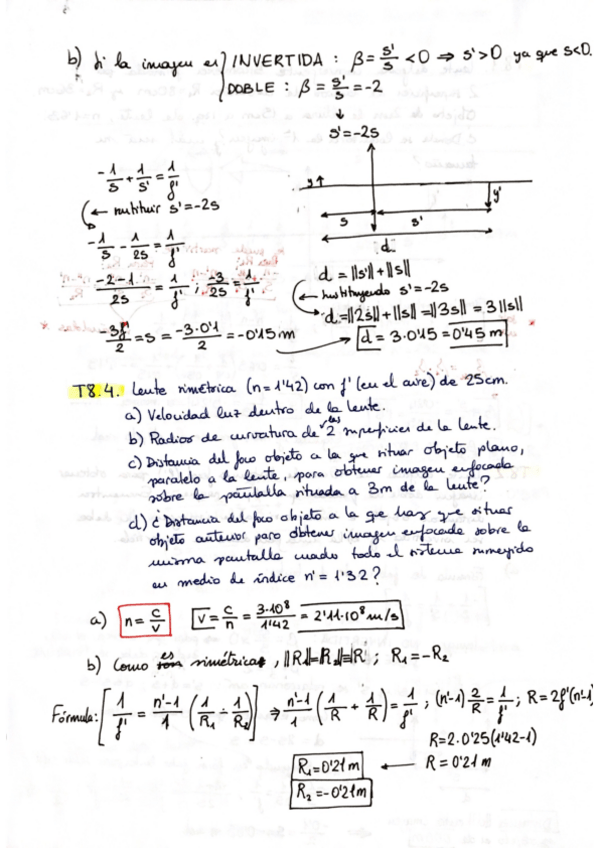 b) Si la imagen es } INVERTIDA : β = s'/s < 0 ⇒ s' > 0, ya que s<0.
DOBLE : β = s'/s = -2
↓
s' = -2s
-1/s + 1/s' = 1/f'
(← sustituir s' = -2s
-1/s - 1/2s = 1/f'
(-2-1)/2s = 1/f' ; -3/2s = 1/f'
-3f'/2 = s = -3·0'1/2 = -0'15 m
y↑
y'
s
s'
d
d = ||s'|| + ||s||
(← sustituyendo s' = -2s
d = ||2s|| + ||s|| = ||3s|| = 3||s||
d = 3·0'15 = 0'45 m
T8.4. Lente simétrica (n = 1'42) con f' (en el aire) de 25cm.
a) Velocidad luz dentro de la lente.
b) Radios de curvatura de las 2 superficies de la lente.
c) Distancia del foco objeto a la que situar objeto plano,
paralelo a la lente, para obtener imagen enfocada
sobre la pantalla situada a 3m de la lente?
d) ¿Distancia del foco objeto a la qe hay que situar
objeto anterior para obtener imagen enfocada sobre la
misma pantalla cuado todo el sistema sumergido
en medio de índice n' = 1'32?
a) n = c/v v = c/n = 3·10⁸/1'42 = 2'11·10⁸ m/s
b) Como es simétrica, ||R₁||=||R₂||=||R|| ; R₁ = -R₂
Fórmula: [1/f' = (n'-1)/1 (1/R₁ - 1/R₂)] ⇒ (n'-1)/1 (1/R + 1/R) = 1/f' ; (n'-1) 2/R = 1/f' ; R = 2f'(n'-1)
R = 2·0'25(1'42-1)
R₁ = 0'21 m ← R = 0'21 m
R₂ = -0'21 m